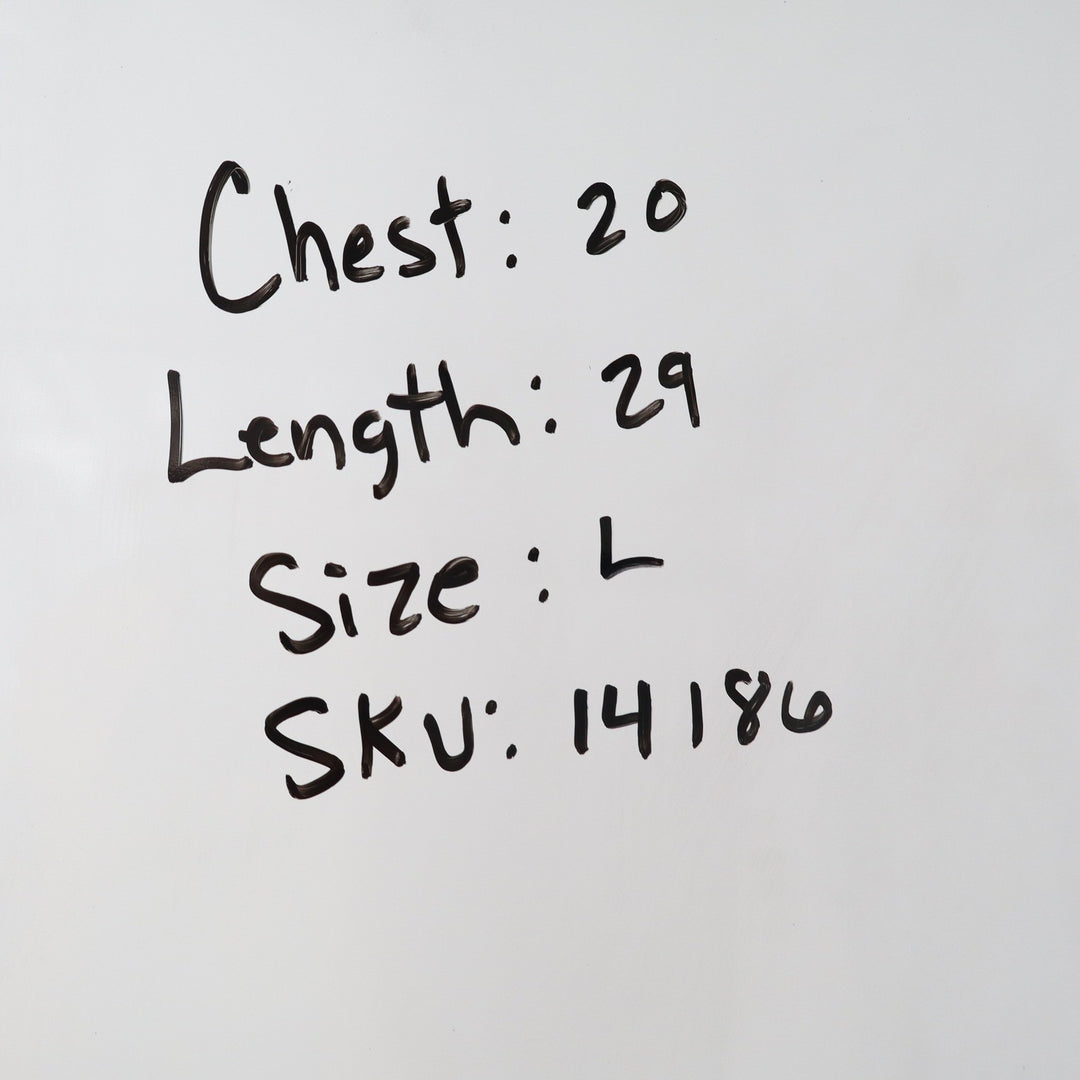 Chest: 20
Length: 29
Size: L
SKU: 14186